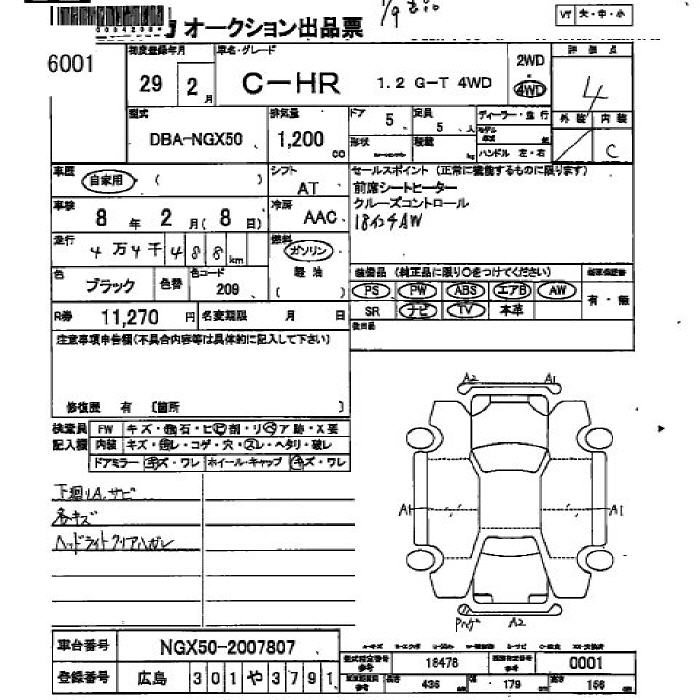 オークション出品票
VT 大・中・小
6001
初度登録年月
29 2月
車名・グレード
C-HR 1.2 G-T 4WD
2WD
4WD
評価点
4
型式
DBA-NGX50
排気量
1,200 cc
ドア 5
定員 5 人
形状
積載 kg
ディーラー・並行
モデル
年式
ハンドル 左・右
外装 内装
C
車歴
自家用 ( )
シフト
AT
セールスポイント (正常に機能するものに限ります)
前席シートヒーター
クルーズコントロール
18インチAW
車検
8 年 2 月 ( 8 日)
冷房
AAC
走行
4 万 4 千 4 8 8 km
燃料
ガソリン
軽油
( )
色
ブラック
色替
色コード
209
装備品 (純正品に限り○をつけてください)
PS PW ABS エアB AW
SR ナビ TV 本革
有・無
R券 11,270 円
名変期限 月 日
後日品
注意事項申告欄(不具合内容等は具体的に記入して下さい)
修復歴 有 [箇所 ]
検査員
記入欄
FW キズ・飛石・ヒビ・削・リペア跡・X要
内装 キズ・汚レ・コゲ・穴・スレ・ヘタリ・破レ
ドアミラー キズ・ワレ ホイール・キャップ キズ・ワレ
下廻りA、サビ
各キズ
ヘッドライトクリアハガレ
A2 A1
A1 A1
A2
車台番号
NGX50-2007807
登録番号
広島 301 や 3791
型式指定番号
参考
18478
類別指定番号
参考
0001
参考
長さ 436
幅 179
高さ 156